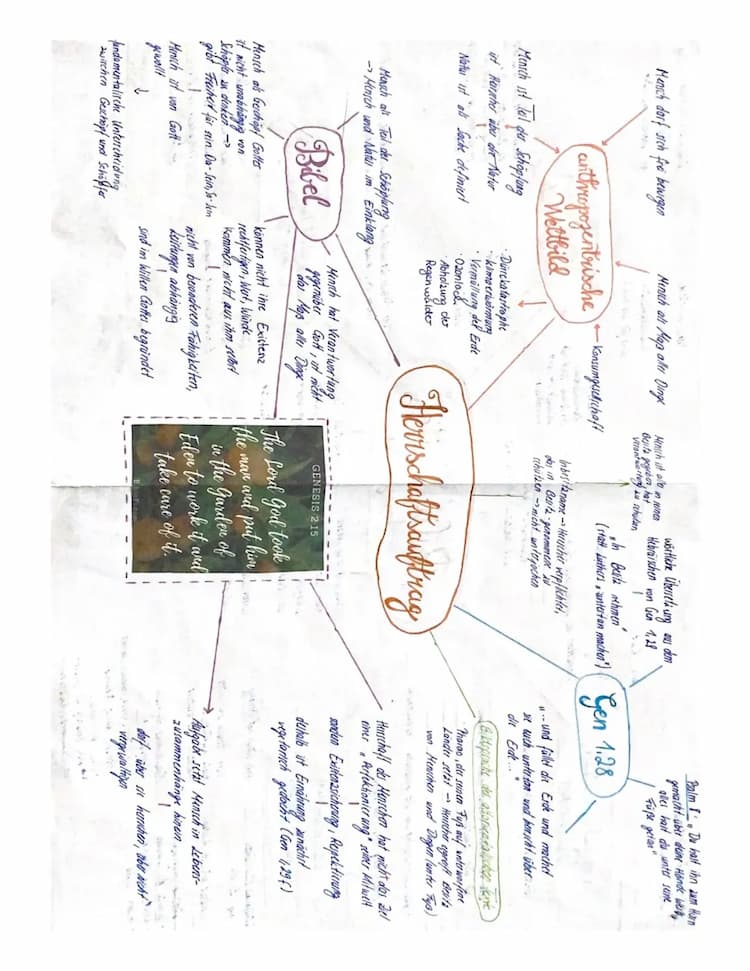 Herrschaftsauftrag
anthropozentrische
Weltbild
Mensch darf sich frei bewegen
Mensch als Maß aller Dinge
Konsumgesellschaft
Mensch ist Teil der Schöpfung
ist Herrscher über der Natur
Natur ist als Sache definiert
· Dürrekatastrophe
· Klimaerwärmung
· Vermüllung der Erde
· Ozonloch
· Abholzung der
Regenwälder
Bibel
Mensch als Teil der Schöpfung
→ Mensch und Natur im Einklang
Mensch als Geschöpf Gottes
ist nicht unabhängig von
Schöpfer zu denken →
gibt Freiheit für ein
Mensch ist von Gott
gewollt
fundamentalische Unterscheidung
zwischen Geschöpf und Schöpfer
Mensch hat Verantwortung
gegenüber Gott, ist nicht
das Maß aller Dinge
können nicht ihre Existenz
rechtfertigen, Wert, Würde
kommen nicht aus ihm selbst
nicht von besonderen Fähigkeiten,
Leistungen abhängig
sind im Willen Gottes begründet
GENESIS 2:15
The Lord God took
the man and put him
in the Garden of
Eden to work it and
take care of it.
Gen 1:28
wörtliche Übersetzung aus dem
Hebräischen von Gen 1:28
"In Besitz nehmen"
(statt Luthers "untertan machen")
Mensch ist alles in seinen
Besitz gegeben, hat
Verantwortung zu schulden
Inbesitznahme → Herrscher verpflichtet,
das in Besitz genommene zu
schützen → nicht unterjochen
Psalm 8: "Du hast ihn zum Herrn
gemacht über deine Hände Werk,
alles hast du unter seine
Füße getan"
"...und füllet die Erde und machet
sie euch untertan und herrscht über...
die Erde..."
Pharao, der seinen Fuß auf unterworfene
Länder setzt → Herrscher ergreift Besitz
von Menschen und Dingen (unter Fuß)
Herrschaft der Menschen hat nicht das Ziel
einer "Perfektionierung" seiner Mitwelt
sondern Existenzsicherung, Respektierung
deshalb ist Ernährung zunächst
vegetarisch gedacht (Gen 1,29f)
Aufgabe setzt Mensch in Lebens-
zusammenhänge hinein
darf "über sie herrschen, aber nicht
vergewaltigen"